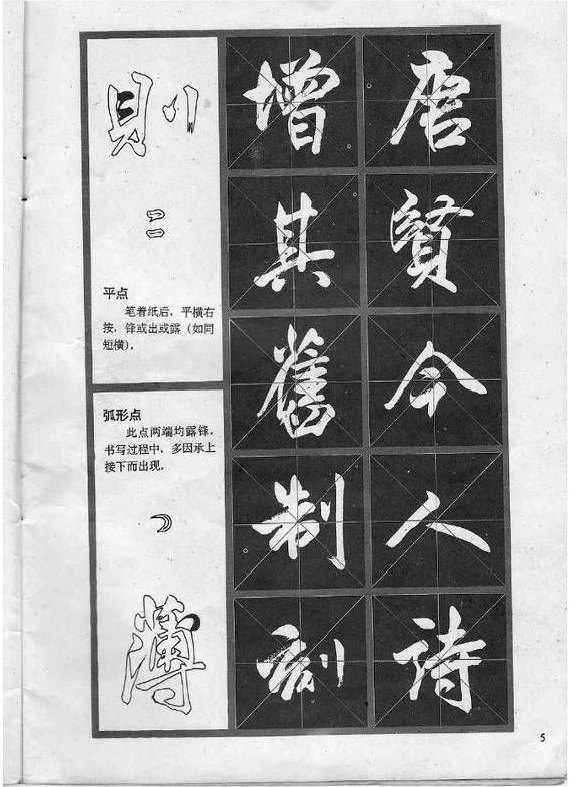 唐賢今人詩
增其舊制刻
則
平点
笔着纸后，平横右
按，锋或出或露（如同
短横）。
弧形点
此点两端均露锋，
书写过程中，多因承上
接下而出现。
薄
5